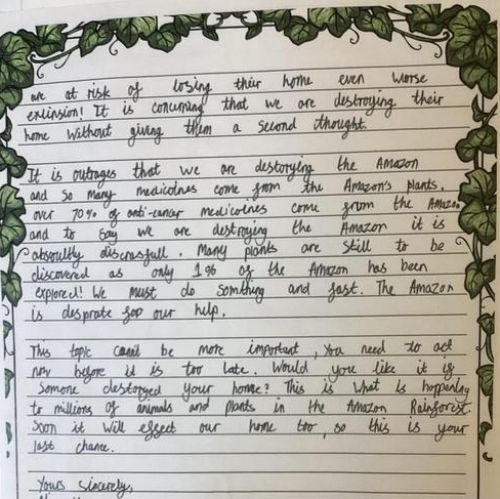 are at risk of losing their home even worse
exlinsion! It is concurning that we are destroying their
home without giving them a second thought.
It is outrages that we are destorying the Amazon
and so many medicotnes come from the Amazon's plants.
over 70% of anti-cancer medicotnes come from the Amazon
and to say we are destroying the Amazon it is
absoultly discrasfull. Many plants are still to be
discovered as only 1% of the Amazon has been
explored! We must do somthing and fast. The Amazon
is desprate for our help.
This topic can't be more important, you need to act
now before it is too late. Would you like it if
somone destoryed your home? This is what is happening
to millions of animals and plants in the Amazon Rainforest.
Soon it will effect our home too, so this is your
last chance.
Yours sincerely,